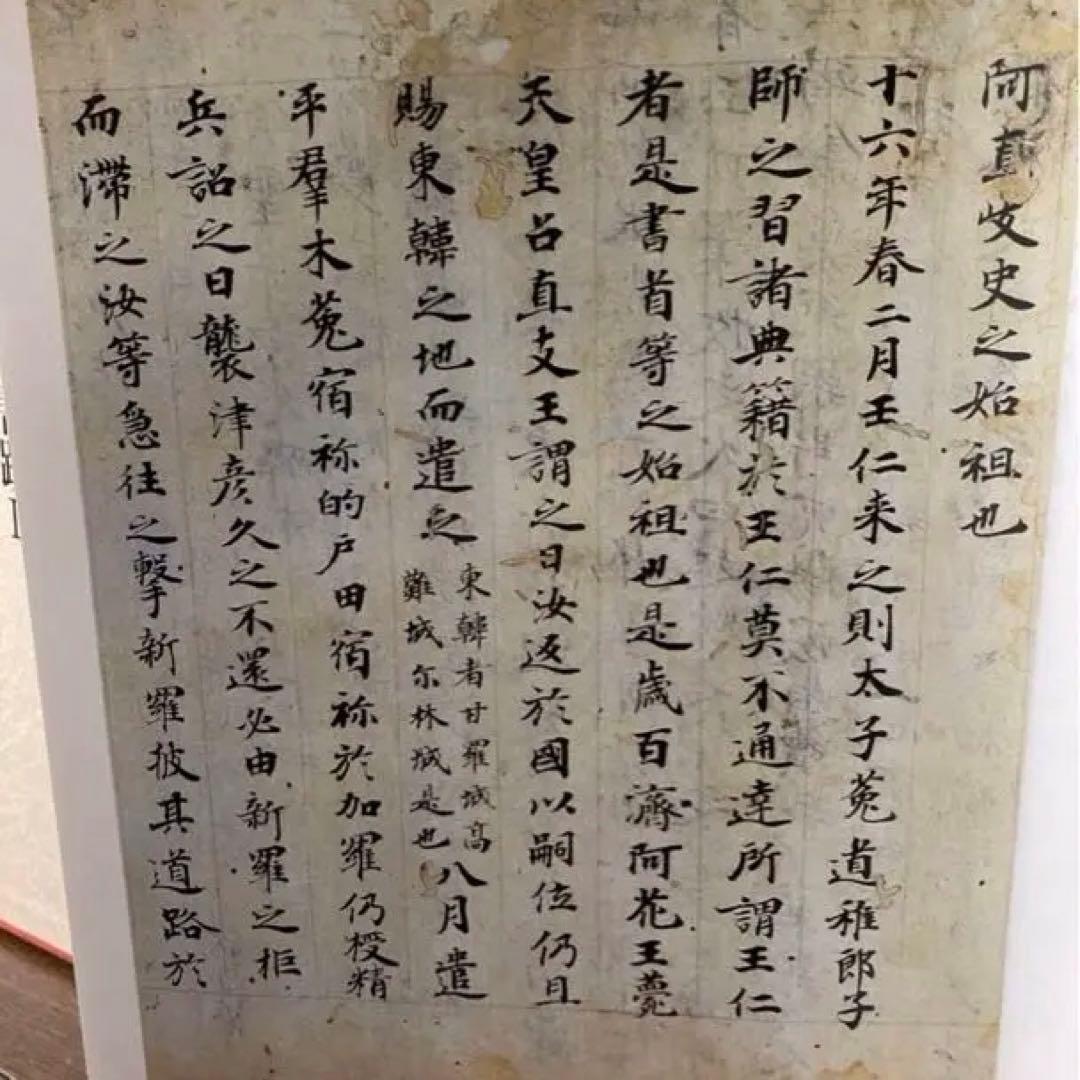 阿直岐史之始祖也
十六年春二月王仁来之則太子菟道稚郎子
師之習諸典籍於王仁莫不通達所謂王仁
者是書首等之始祖也是歳百濟阿花王薨
天皇召直支王謂之曰汝返於國以嗣位仍且
賜東韓之地而遣之 東韓者甘羅城高
難城尓林城是也 八月遣
平羣木菟宿祢的戸田宿祢於加羅仍授精
兵詔之曰襲津彦久之不還必由新羅之拒
而滯之汝等急往之擊新羅披其道路於